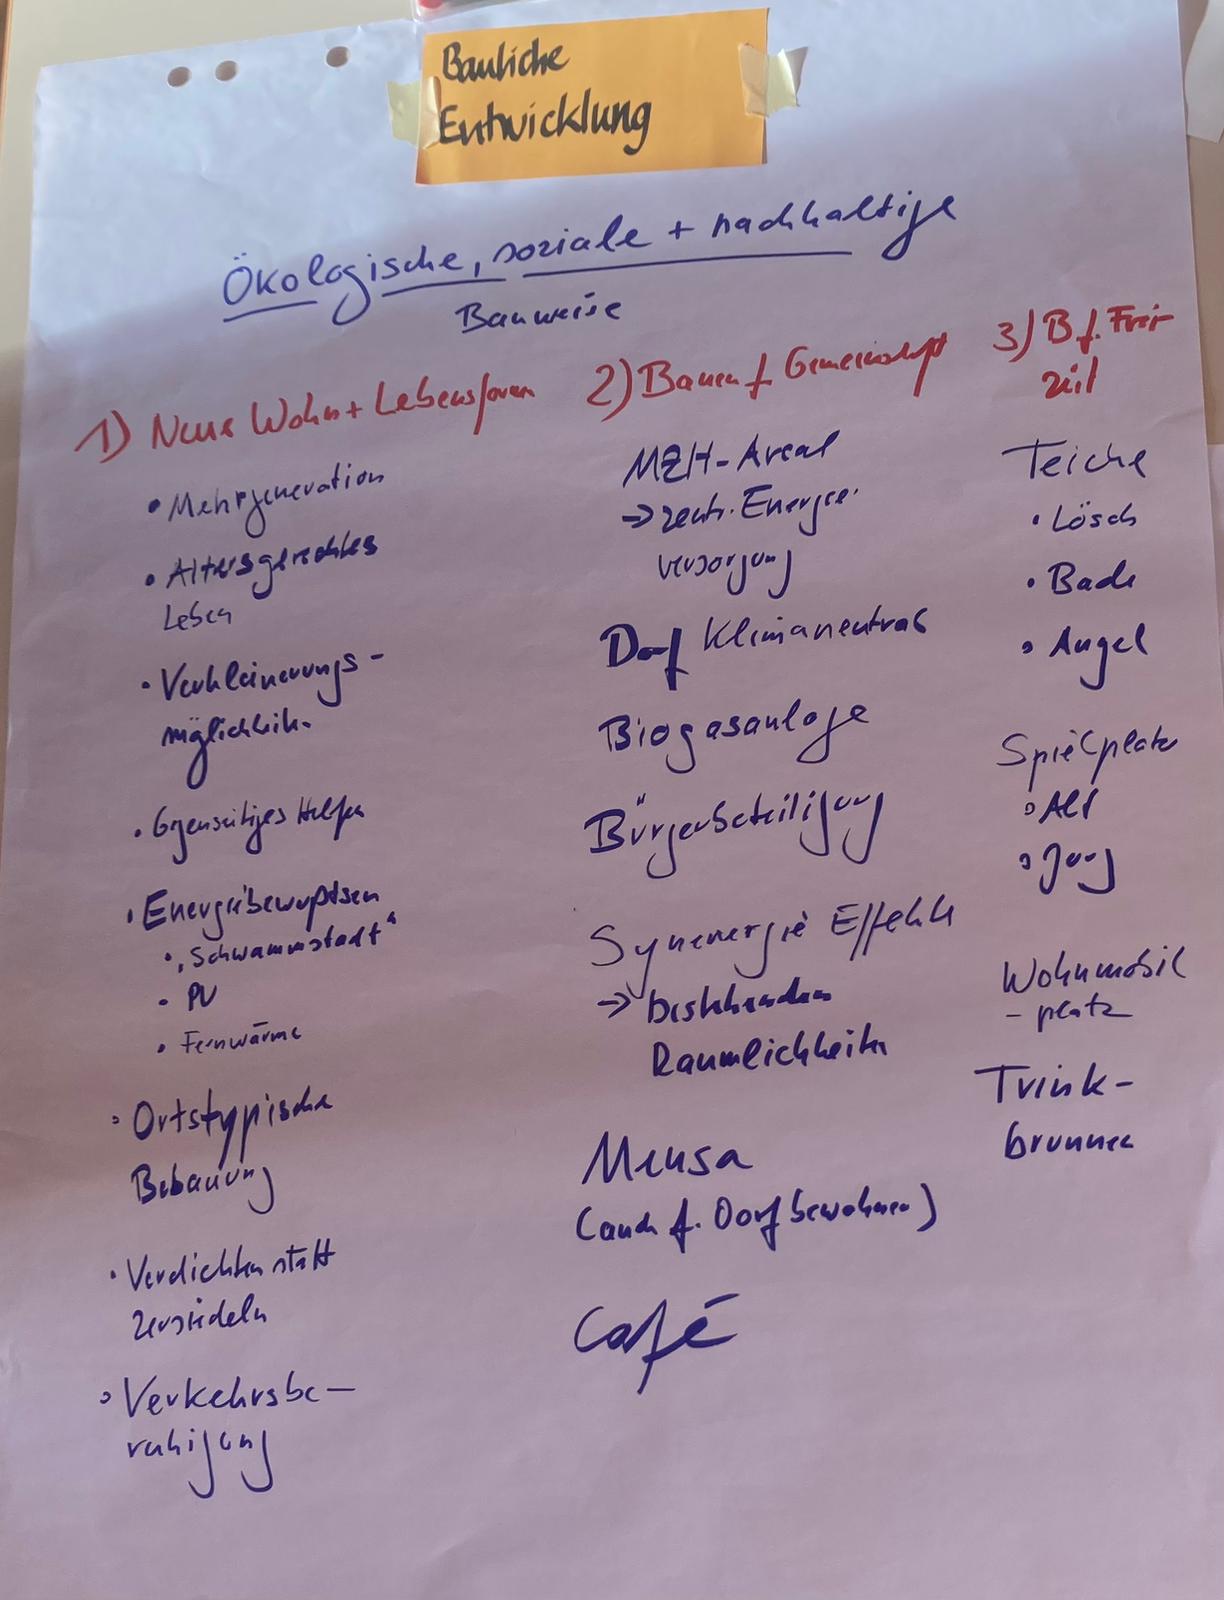 Bauliche
Entwicklung
Ökologische, soziale + nachhaltige
Bauweise
1) Neue Wohn + Lebensformen
• Mehrgeneration
• Altersgerechtes
Leben
• Verkleinerungs-
möglichkeit.
• Gegenseitiges Helfen
• Energiebewußtsein
• „Schwammstadt“
- PV
• Fernwärme
• Ortstypische
Bebauung
• Verdichten statt
zersiedeln
• Verkehrsbe-
ruhigung
2) Bauen f. Gemeinschaft
MZH-Areal
→ zentr. Energie-
versorgung
Dorf Klimaneutral
Biogasanlage
Bürgerbeteiligung
Synenergie Effekte
→ bestehenden
Räumlichkeiten
Mensa
(auch f. Dorfbewohner)
Café
3) B. f. Frei-
zeit
Teiche
• Lösch
• Bade
• Angel
Spielplatz
• Alt
• Jung
Wohnmobil
- platz
Trink-
brunnen